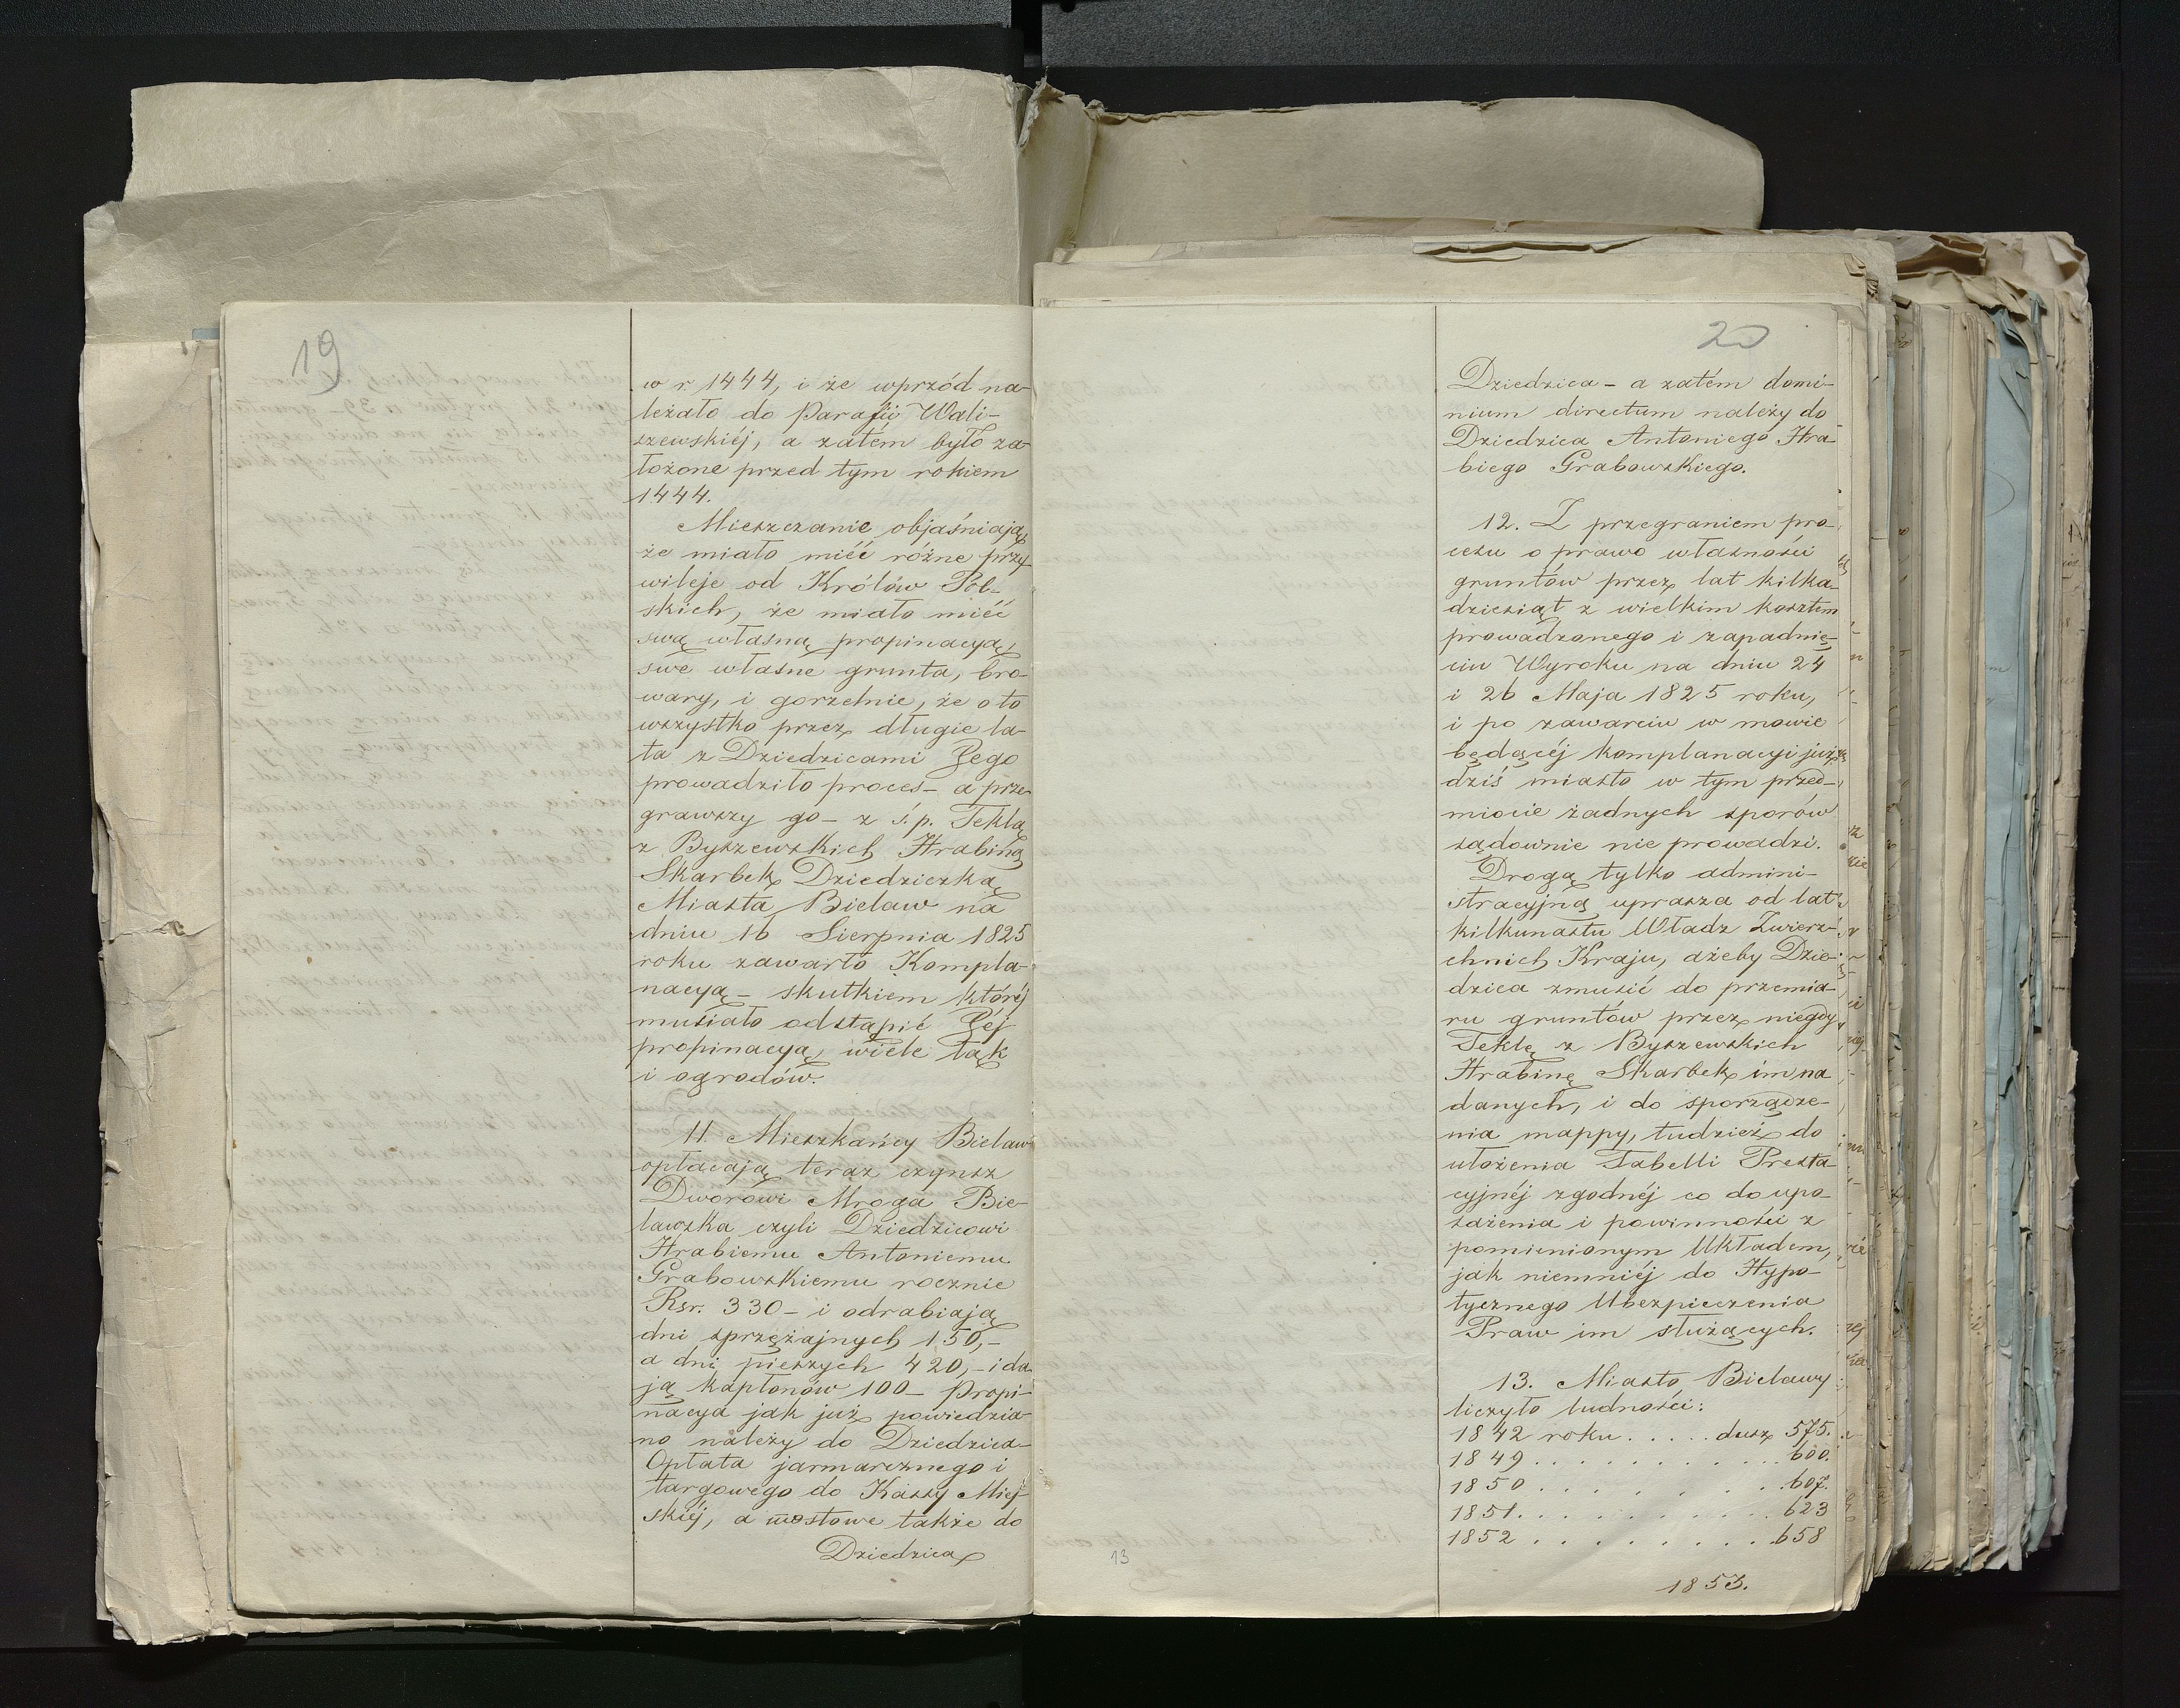 19
w r. 1444, i że wprzód na-
leżało do Parafii Wali-
szewskiéj, a zatém było za-
łożone przed tym rokiem
1444.
Mieszczanie objaśniają,
że miało mićć różne przy-
wileje od Królów Pol-
skich, że miało mićć
swą własną propinacyą,
swe własne grunta, bro-
wary, i gorzelnie, że o to
wszystko przez długie la-
ta z Dziedzicami Jego
prowadziło proces – a prze-
grawszy go – z ś. p. Teklą
z Byszewskich Hrabiną
Skarbek Dziedziczką
Miasta Bielaw na
dniu 16 Sierpnia 1825
roku zawarło Kompla-
nacyą – skutkiem któréj
musiało odstąpić Jéj
propinacyą, wiele łąk
i ogrodów.
11. Mieszkańcy Bielaw
opłacają teraz czynsz
Dworowi Mroga Bie-
lawska czyli Dziedzicowi
Hrabiemu Antoniemu
Grabowskiemu rocznie
Rsr. 330 – i odrabiają
dni sprzężajnych 150, –
a dni pieszych 420, – i da-
ją kapłonów 100 – Propi-
nacya jak już powiedzia-
no należy do Dziedzica –
Opłata jarmarcznego i
targowego do Kassy Miej-
skiéj, a mostowe także do
Dziedzica
20
Dziedzica – a zatém domi-
nium directum należy do
Dziedzica Antoniego Hra-
biego Grabowskiego.
12. Z przegraniem pro-
cesu o prawo własności
gruntów przez lat kilka-
dziesiąt z wielkim kosztem
prowadzonego i zapadnię-
ciu Wyroku na dniu 24
i 26 Maja 1825 roku,
i po zawarciu w mowie
będącéj komplanacyi już
dziś miasto w tym przed-
miocie żadnych sporów
sądownie nie prowadzi.
Drogą tylko admini-
stracyjną uprasza od lat
kilkunastu Władz Zwierz-
chnich Kraju, ażeby Dzie-
dzica zmusić do przemia-
ru gruntów przez niegdy
Teklę z Byszewskich
Hrabinę Skarbek im na-
danych, i do sporządze-
nia mappy, tudzież do
ułożenia Tabelli Presta-
cyjnéj zgodnéj co do upo-
sażenia i powinności z
pomienionym Układem,
jak niemniéj do Hypo-
tycznego Ubezpieczenia
Praw im służących.
13. Miasto Bielawy
liczyło ludności:
1842 roku . . . . . dusz 575.
1849 . . . . . . . . . . . 600.
1850 . . . . . . . . . 607.
1851. . . . . . . . . . . 623
1852 . . . . . . . . . . 658
1853.
13